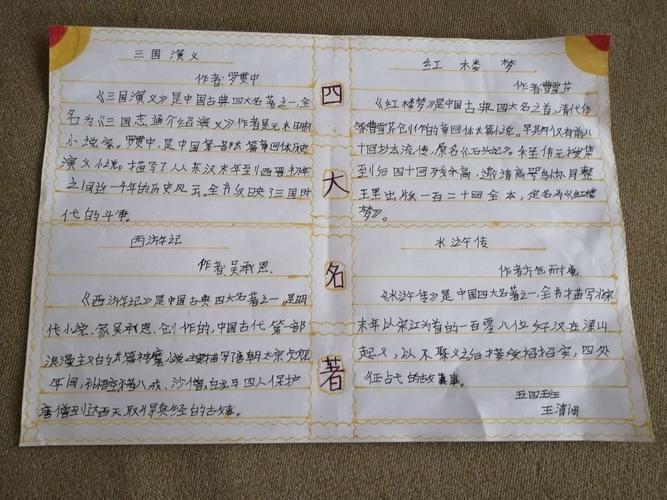 三国演义
作者:罗贯中
《三国演义》是中国古典四大名著之一,全
名为《三国志通俗演义》作者是元末明初
小说家。罗贯中,是中国第一部长篇章回体历史
演义小说。描写了从东汉末年到西晋初年
之间近一千年的历史风云。全书反映了三国时
代的斗事。
西游记
作者:吴承恩
《西游记》是中国古典四大名著之一。是明
代小说家吴承恩创作的,中国古代第一部
浪漫主义的长篇神魔小说主要描写了唐朝太宗贞观
年间,孙悟空猪八戒,沙僧,白龙马四人保护
唐僧到达西天取得真经的古故事。
四大名著
红楼梦
作者:曹雪芹
《红楼梦》是中国古典四大名著之首,清代作
家曹雪芹创作的章回体长篇小说。早期仅有前八
十回抄本流传,原名《石头记》。搜集
到后四十回残稿,邀请高鹗协同整
王里出版一百二十回全本,定名为《红楼
梦》。
水浒传
作者:施耐庵
《水浒传》是中国四大名著之一,全书描写北宋
末年以宋江为首的一百零八位好汉在梁山
起义,以聚义之后接受招安,四处
征占的故事。
五四班
王清